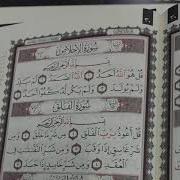 سُورَةُ الإِخْلَاصِ
بِسْمِ اللَّهِ الرَّحْمَٰنِ الرَّحِيمِ
قُلْ هُوَ اللَّهُ أَحَدٌ ۝ اللَّهُ الصَّمَدُ ۝ لَمْ يَلِدْ
وَلَمْ يُولَدْ ۝ وَلَمْ يَكُن لَّهُ كُفُوًا أَحَدٌ ۝
سُورَةُ الفَلَقِ
بِسْمِ اللَّهِ الرَّحْمَٰنِ الرَّحِيمِ
قُلْ أَعُوذُ بِرَبِّ الْفَلَقِ ۝ مِن شَرِّ مَا خَلَقَ ۝
وَمِن شَرِّ غَاسِقٍ إِذَا وَقَبَ ۝ وَمِن شَرِّ
الْعُقَدِ ۝ وَمِن شَرِّ حَاسِدٍ إِذَا